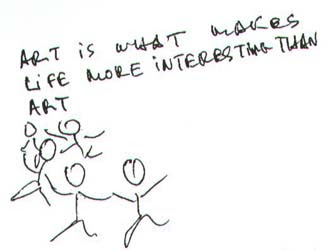 ART IS WHAT MAKES
LIFE MORE INTERESTING THAN
ART